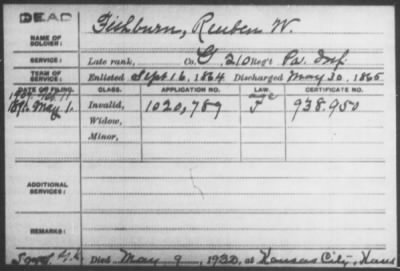 DEAD
NAME OF SOLDIER: Fishburn, Reuben W.
SERVICE: Late rank, Co. G, 210 Reg't Pa. Inf
TERM OF SERVICE: Enlisted Sept 16, 1864 Discharged May 30, 1865
DATE OF FILING. CLASS. APPLICATION NO. LAW. CERTIFICATE NO.
age
1891. May 1. Invalid, 1020,789 F 938.950
Widow,
Minor,
ADDITIONAL SERVICES:
REMARKS:
Died May 9, 1930, at Kansas City, Kans